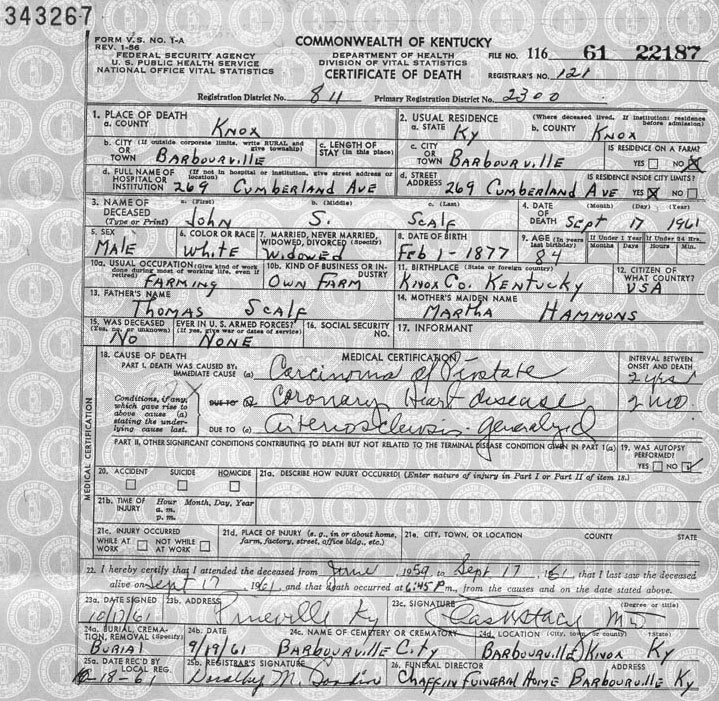 343267
FORM V.S. NO. 1-A
REV. 1-56
FEDERAL SECURITY AGENCY
U. S. PUBLIC HEALTH SERVICE
NATIONAL OFFICE VITAL STATISTICS
COMMONWEALTH OF KENTUCKY
DEPARTMENT OF HEALTH
DIVISION OF VITAL STATISTICS
CERTIFICATE OF DEATH
FILE NO. 116 61 22187
REGISTRAR'S NO. 121
Registration District No. 811 Primary Registration District No. 2300
1. PLACE OF DEATH
a. COUNTY Knox
2. USUAL RESIDENCE (Where deceased lived. If institution: residence before admission)
a. STATE Ky b. COUNTY Knox
b. CITY (If outside corporate limits, write RURAL and give township) OR TOWN Barbourville
c. LENGTH OF STAY (in this place)
c. CITY OR TOWN Barbourville
IS RESIDENCE ON A FARM? YES NO X
d. FULL NAME OF HOSPITAL OR INSTITUTION (If not in hospital or institution, give street address or location) 269 Cumberland Ave
d. STREET ADDRESS 269 Cumberland Ave
IS RESIDENCE INSIDE CITY LIMITS? YES X NO
3. NAME OF DECEASED (Type or Print) a. (First) b. (Middle) c. (Last)
John S. Scalf
4. DATE OF DEATH (Month) (Day) (Year)
Sept 17 1961
5. SEX Male
6. COLOR OR RACE White
7. MARRIED, NEVER MARRIED, WIDOWED, DIVORCED (Specify) Widowed
8. DATE OF BIRTH Feb 1-1877
9. AGE (In years last birthday) 84
If Under 1 Year Months Days
If Under 24 Hrs. Hours Min.
10a. USUAL OCCUPATION (Give kind of work done during most of working life, even if retired) Farming
10b. KIND OF BUSINESS OR INDUSTRY Own Farm
11. BIRTHPLACE (State or foreign country) Knox Co. Kentucky
12. CITIZEN OF WHAT COUNTRY? USA
13. FATHER'S NAME Thomas Scalf
14. MOTHER'S MAIDEN NAME Martha Hammons
15. WAS DECEASED EVER IN U. S. ARMED FORCES? (Yes, no, or unknown) (If yes, give war or dates of service) No None
16. SOCIAL SECURITY NO.
17. INFORMANT
MEDICAL CERTIFICATION
18. CAUSE OF DEATH MEDICAL CERTIFICATION
INTERVAL BETWEEN ONSET AND DEATH
PART I. DEATH WAS CAUSED BY:
IMMEDIATE CAUSE (a) Carcinoma of Prostate 2 yrs
Conditions, if any, which gave rise to above cause (a) stating the underlying cause last.
DUE TO (b) Coronary Heart disease 2 mo
DUE TO (c) arteriosclerosis generalized
PART II, OTHER SIGNIFICANT CONDITIONS CONTRIBUTING TO DEATH BUT NOT RELATED TO THE TERMINAL DISEASE CONDITION GIVEN IN PART 1(a)
19. WAS AUTOPSY PERFORMED? YES NO ✓
20. ACCIDENT SUICIDE HOMICIDE
21a. DESCRIBE HOW INJURY OCCURRED! (Enter nature of injury in Part I or Part II of item 18.)
21b. TIME OF INJURY Hour Month, Day, Year
a. m.
p. m.
21c. INJURY OCCURRED
WHILE AT WORK NOT WHILE AT WORK
21d. PLACE OF INJURY (e. g., in or about home, farm, factory, street, office bldg., etc.)
21e. CITY, TOWN, OR LOCATION COUNTY STATE
22. I hereby certify that I attended the deceased from June, 1959 to Sept 17, 1961, that I last saw the deceased
alive on Sept 17 1961, and that death occurred at 6:45 P m., from the causes and on the date stated above.
23a. DATE SIGNED 10/17/61
23b. ADDRESS Pineville Ky
23c. SIGNATURE (Degree or title) Stacy MD
24a. BURIAL, CREMATION, REMOVAL (Specify) Burial
24b. DATE 9/19/61
24c. NAME OF CEMETERY OR CREMATORY Barbourville City
24d. LOCATION (City, town, or county) (State) Barbourville Knox Ky
25a. DATE REC'D BY LOCAL REG. 10-18-61
25b. REGISTRAR'S SIGNATURE Dorothy M.
26. FUNERAL DIRECTOR ADDRESS
Chaffin Funeral Home Barbourville Ky